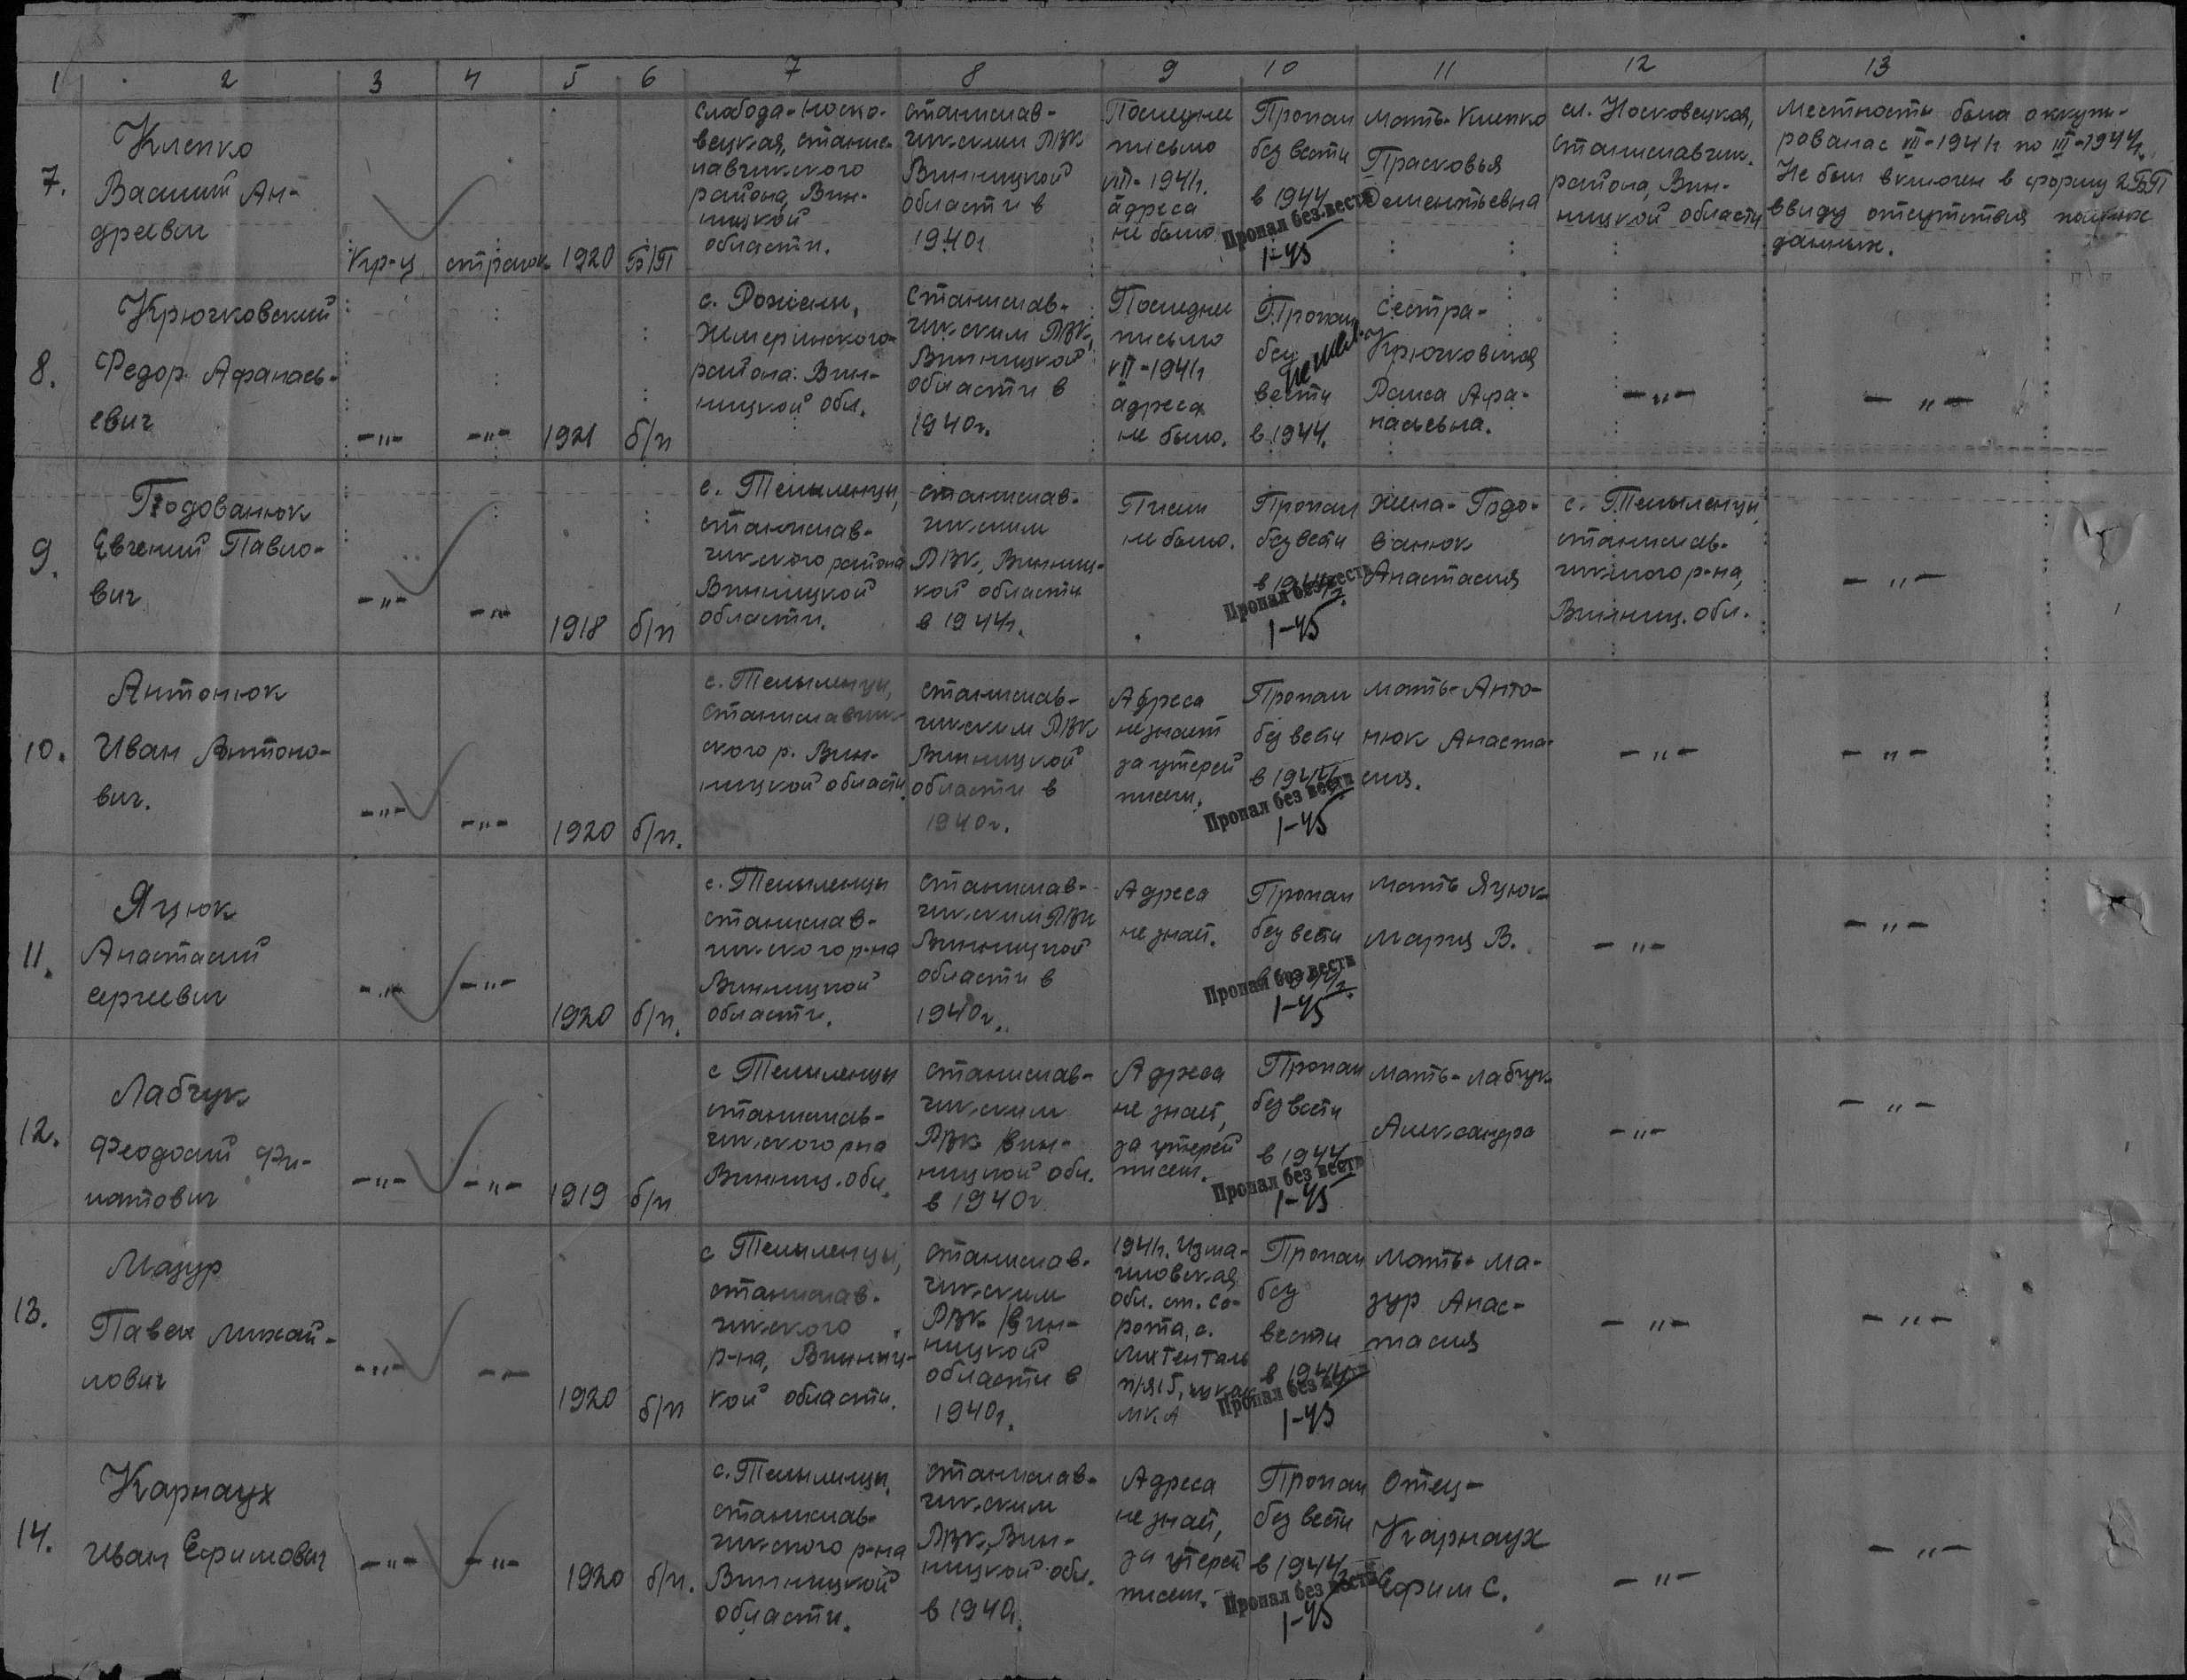 1 2 3 4 5 6 7 8 9 10 11 12 13
7.
Клепко
Василий Ан-
дреевич
Кр-ц
стрелок
1920
Б/П
слабода-Носко-
вецкая, станис-
лавчикского
района, Вин-
ницкой
области.
станислав-
чикским РВК
Винницкой
области в
1940г
Последнее
письмо
VII-1941г.
адреса
не было
Пропал
без вести
в 1944
Пропал без вести
1-45
мать-Клепко
Прасковья
Дементьевна
сл. Носковецкая,
станиславчик.
района, Вин-
ницкой области
местность была оккупи-
рована с VII-1941г по III-1944г.
Не был включен в форму 2БП
ввиду отсутствия полных
данных.
8.
Крючковский
Федор Афанась-
евич
-"-
-"-
1921
б/п
с. Рожепы,
Жмеринского
района. Вин-
ницкой обл.
Станислав-
чикским РВК,
Винницкой
области в
1940г.
Последнее
письмо
VII-1941г
адреса
не было.
Пропал
без
вести
в 1944.
сестра-
Крючковская
Раиса Афа-
насьевна.
-"-
-"-
9.
Годованюк
Евгений Павло-
вич
-"-
-"-
1918
б/п
с. Телыленцы,
станислав-
чикского района
Винницкой
области.
станислав-
чикским
РВК, Винниц-
кой области
в 1944г.
Писем
не было.
Пропал
без вести
в 1944г.
Пропал без вести
1-45
жена-Годо-
ванюк
Анастасия
с. Телыленцы
станислав-
чикского р-на,
Винниц. обл.
-"-
10.
Антонюк
Иван Антоно-
вич.
-"-
-"-
1920
б/п.
с. Телыленцы,
станиславчик-
ского р. Вин-
ницкой области.
станислав-
чикским РВК
Винницкой
области в
1940г.
Адреса
не знает
за утерей
писем.
Пропал
без вести
в 1944г
Пропал без вести
1-45
мать-Анто-
нюк Анаста-
сия.
-"-
-"-
11.
Яцюк
Анастасий
сергеевич
-"-
-"-
1920
б/п.
с. Телыленцы
станислав-
чикского р-на
Винницкой
области.
станислав-
чикским РВК
Винницкой
области в
1940г.
Адреса
не знает.
Пропал
без вести
в 1944г.
Пропал без вести
1-45
мать Яцюк
Мария В.
-"-
-"-
12.
Лабчук
Феодосий Фи-
латович
-"-
-"-
1919
б/п
с Телыленцы
станислав-
чикского р-на
Винниц. обл.
станислав-
чикским
РВК Вин-
ницкой обл.
в 1940г
Адреса
не знает,
за утерей
писем.
Пропал
без вести
в 1944
Пропал без вести
1-45
мать-лабчук
Александра
-"-
-"-
13.
Мазур
Павел Михай-
лович
-"-
-"-
1920
б/п
с Телыленцы,
станислав-
чикского
р-на, Винниц-
кой области.
станислав-
чикским
РВК Вин-
ницкой
области в
1940г.
1941г. Изма-
иловская
обл. ст. Са-
рата, с.
Лихтенталь
Пропал
без
вести
в 1944
Пропал без вести
1-45
Мать-Ма-
зур Анас-
тасия
-"-
-"-
14.
Карнаух
Иван Ефимович
-"-
-"-
1920
б/п.
с. Телыленцы,
станислав-
чикского р-на
Винницкой
области.
станислав-
чикским
РВК, Вин-
ницкой обл.
в 1940г.
Адреса
не знает,
за утерей
писем.
Пропал
без вести
в 1944г
Пропал без вести
1-45
Отец-
Карнаух
Ефим С.
-"-
-"-